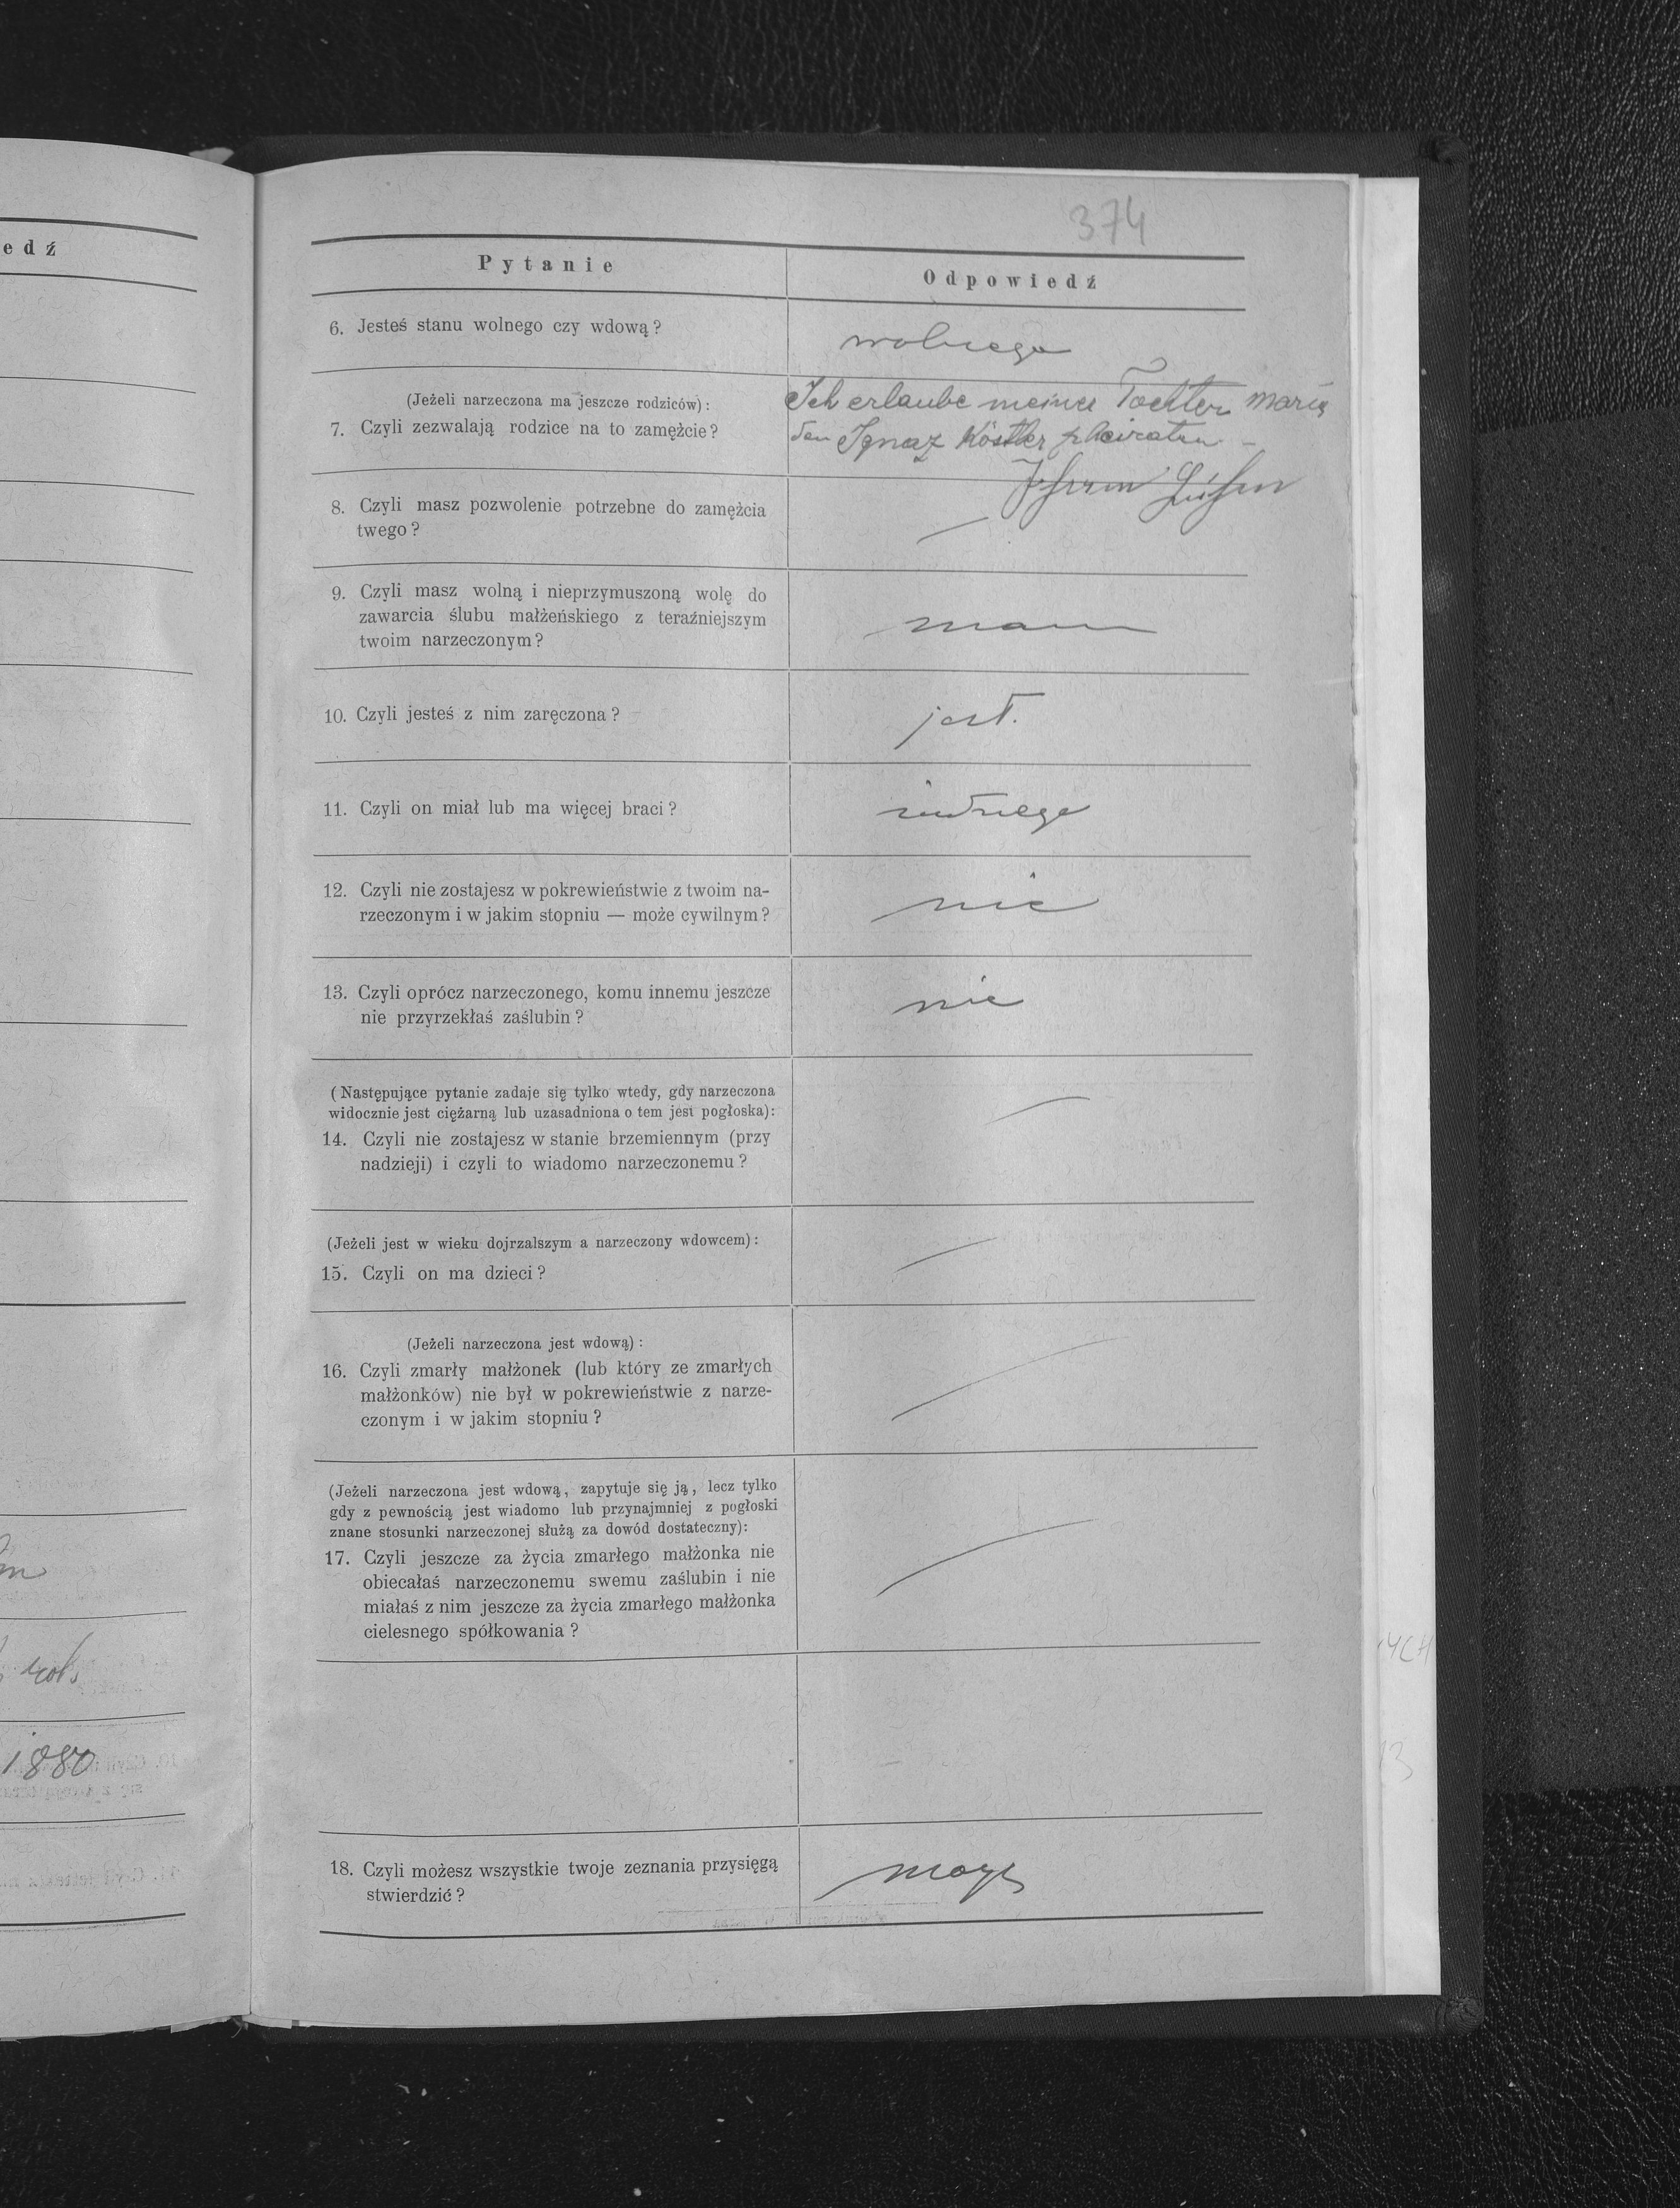 374
edź
Pytanie
Odpowiedź
6. Jesteś stanu wolnego czy wdową?
wolnego
(Jeżeli narzeczona ma jeszcze rodziców):
7. Czyli zezwalają rodzice na to zamężcie?
Ich erlaube meiner Tochter Marie
den Ignaz Köstler z heiraten
8. Czyli masz pozwolenie potrzebne do zamężcia
twego?
9. Czyli masz wolną i nieprzymuszoną wolę do
zawarcia ślubu małżeńskiego z teraźniejszym
twoim narzeczonym?
mam
10. Czyli jesteś z nim zaręczona?
jest.
11. Czyli on miał lub ma więcej braci?
12. Czyli nie zostajesz w pokrewieństwie z twoim na-
rzeczonym i w jakim stopniu — może cywilnym?
nie
13. Czyli oprócz narzeczonego, komu innemu jeszcze
nie przyrzekłaś zaślubin?
nie
(Następujące pytanie zadaje się tylko wtedy, gdy narzeczona
widocznie jest ciężarną lub uzasadniona o tem jest pogłoska):
14. Czyli nie zostajesz w stanie brzemiennym (przy
nadzieji) i czyli to wiadomo narzeczonemu?
(Jeżeli jest w wieku dojrzalszym a narzeczony wdowcem):
15. Czyli on ma dzieci?
(Jeżeli narzeczona jest wdową):
16. Czyli zmarły małżonek (lub który ze zmarłych
małżonków) nie był w pokrewieństwie z narze-
czonym i w jakim stopniu?
(Jeżeli narzeczona jest wdową, zapytuje się ją, lecz tylko
gdy z pewnością jest wiadomo lub przynajmniej z pogłoski
znane stosunki narzeczonej służą za dowód dostateczny):
17. Czyli jeszcze za życia zmarłego małżonka nie
obiecałaś narzeczonemu swemu zaślubin i nie
miałaś z nim jeszcze za życia zmarłego małżonka
cielesnego spółkowania?
1880
18. Czyli możesz wszystkie twoje zeznania przysięgą
stwierdzić?
mogę